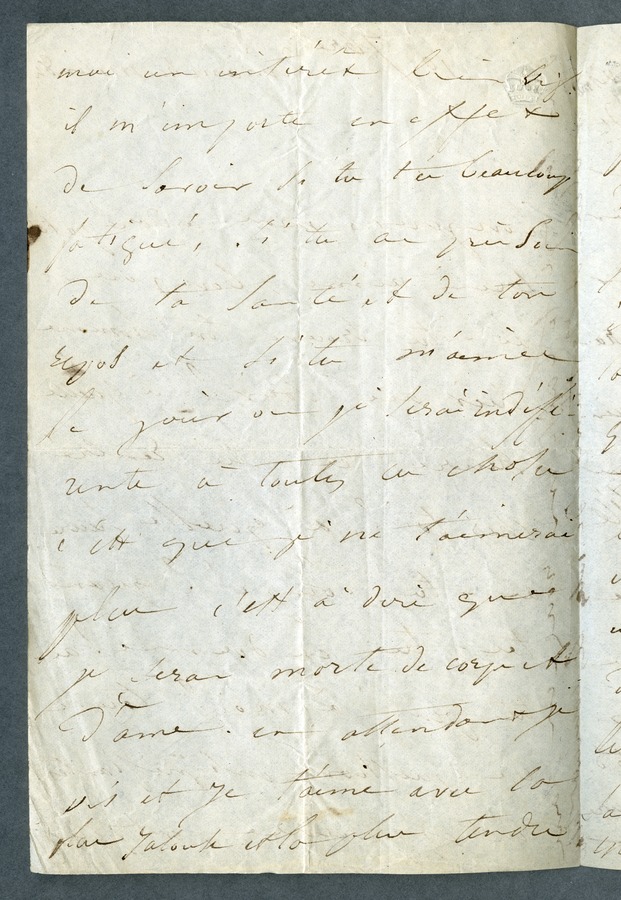 moi un intérêt bien vif
il m'importe en effet
de savoir si tu t'es beaucoup
fatigué, si tu as pris soin
de ta santé et de ton
repos et si tu m'aimes
le jour où je serai indiffé-
rente à toutes ces choses
c'est que je ne t'aimerai
plus c'est à dire que
je serai morte de corps et
d'âme. en attendant je
vis et je t'aime avec la
plus jalouse et la plus tendre